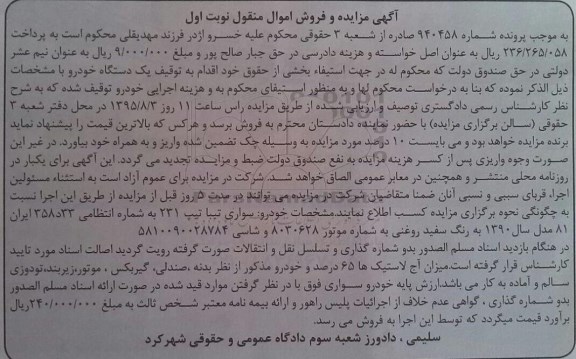 آگهی مزایده و فروش اموال منقول نوبت اول
به موجب پرونده شماره ۹۴۰۴۵۸ صادره از شعبه ۳ حقوقی محکوم علیه خسرو اژدر فرزند مهدیقلی محکوم است به پرداخت
۲۳۶/۲۶۵/۰۵۸ ریال به عنوان اصل خواسته و هزینه دادرسی در حق جبار صالح پور و مبلغ ۹/۰۰۰/۰۰۰ ریال به عنوان نیم عشر
دولتی در حق صندوق دولت که محکوم له در جهت استیفاء بخشی از حقوق خود اقدام به توقیف یک دستگاه خودرو با مشخصات
ذیل الذکر نموده که بنا به درخواست محکوم لها و به منظور استیفای محکوم به و هزینه اجرایی خودرو توقیف شده که به شرح
نظر کارشناس رسمی دادگستری توصیف و ارزیابی شده از طریق مزایده راس ساعت ۱۱ روز ۱۳۹۵/۸/۳ در محل دفتر شعبه ۳
حقوقی (سالن برگزاری مزایده) با حضور نماینده دادستان محترم به فروش برسد و هرکس که بالاترین قیمت را پیشنهاد نماید
برنده مزایده خواهد بود و می بایست ۱۰ درصد مورد مزایده به وسیله چک تضمین شده واریز و به همراه خود بیاورد. در غیر این
صورت وجوه واریزی پس از کسر هزینه مزایده به نفع صندوق دولت ضبط و مزایده تجدید می گردد. این آگهی برای یکبار در
روزنامه محلی منتشر و همچنین در معابر عمومی الصاق خواهد شد. شرکت در مزایده برای عموم آزاد است به استثناء مسئولین
اجرا، قربای سببی و نسبی آنان ضمنا متقاضیان شرکت در مزایده می توانند در مدت ۵ روز قبل از مزایده از طریق این اجرا نسبت
به چگونگی نحوه برگزاری مزایده کسب اطلاع نمایند.مشخصات خودرو:سواری تیبا تیپ ۲۳۱ به شماره انتظامی ۳۳د۳۵۸ ایران
۸۱ مدل سال۱۳۹۰ به رنگ سفید روغنی به شماره موتور ۸۰۳۰۶۲۸ و شاسی ۵۸۱۰۰۹۰۰۲۸۷۸۴
در هنگام بازدید اسناد مسلم الصدور بدو شماره گذاری و تسلسل نقل و انتقالات صورت گرفته رویت گردید اصالت اسناد مورد تایید
کارشناس قرار گرفته است.میزان آج لاستیک ها ۶۵ درصد و خودرو مذکور از نظر بدنه ،صندلی، گیربکس ، موتور،زیربند،تودوزی
سالم و آماده به کار می باشد.ارزش پایه خودرو سواری فوق با در نظر گرفتن موارد قید شده در صورت ارائه اسناد مسلم الصدور
بدو شماره گذاری ، گواهی عدم خلاف از اجرائیات پلیس راهور و ارائه بیمه نامه معتبر شخص ثالث به مبلغ ۲۴۰/۰۰۰/۰۰۰ریال
برآورد قیمت میگردد که توسط این اجرا به فروش می رسد.
سلیمی ، دادورز شعبه سوم دادگاه عمومی و حقوقی شهرکرد